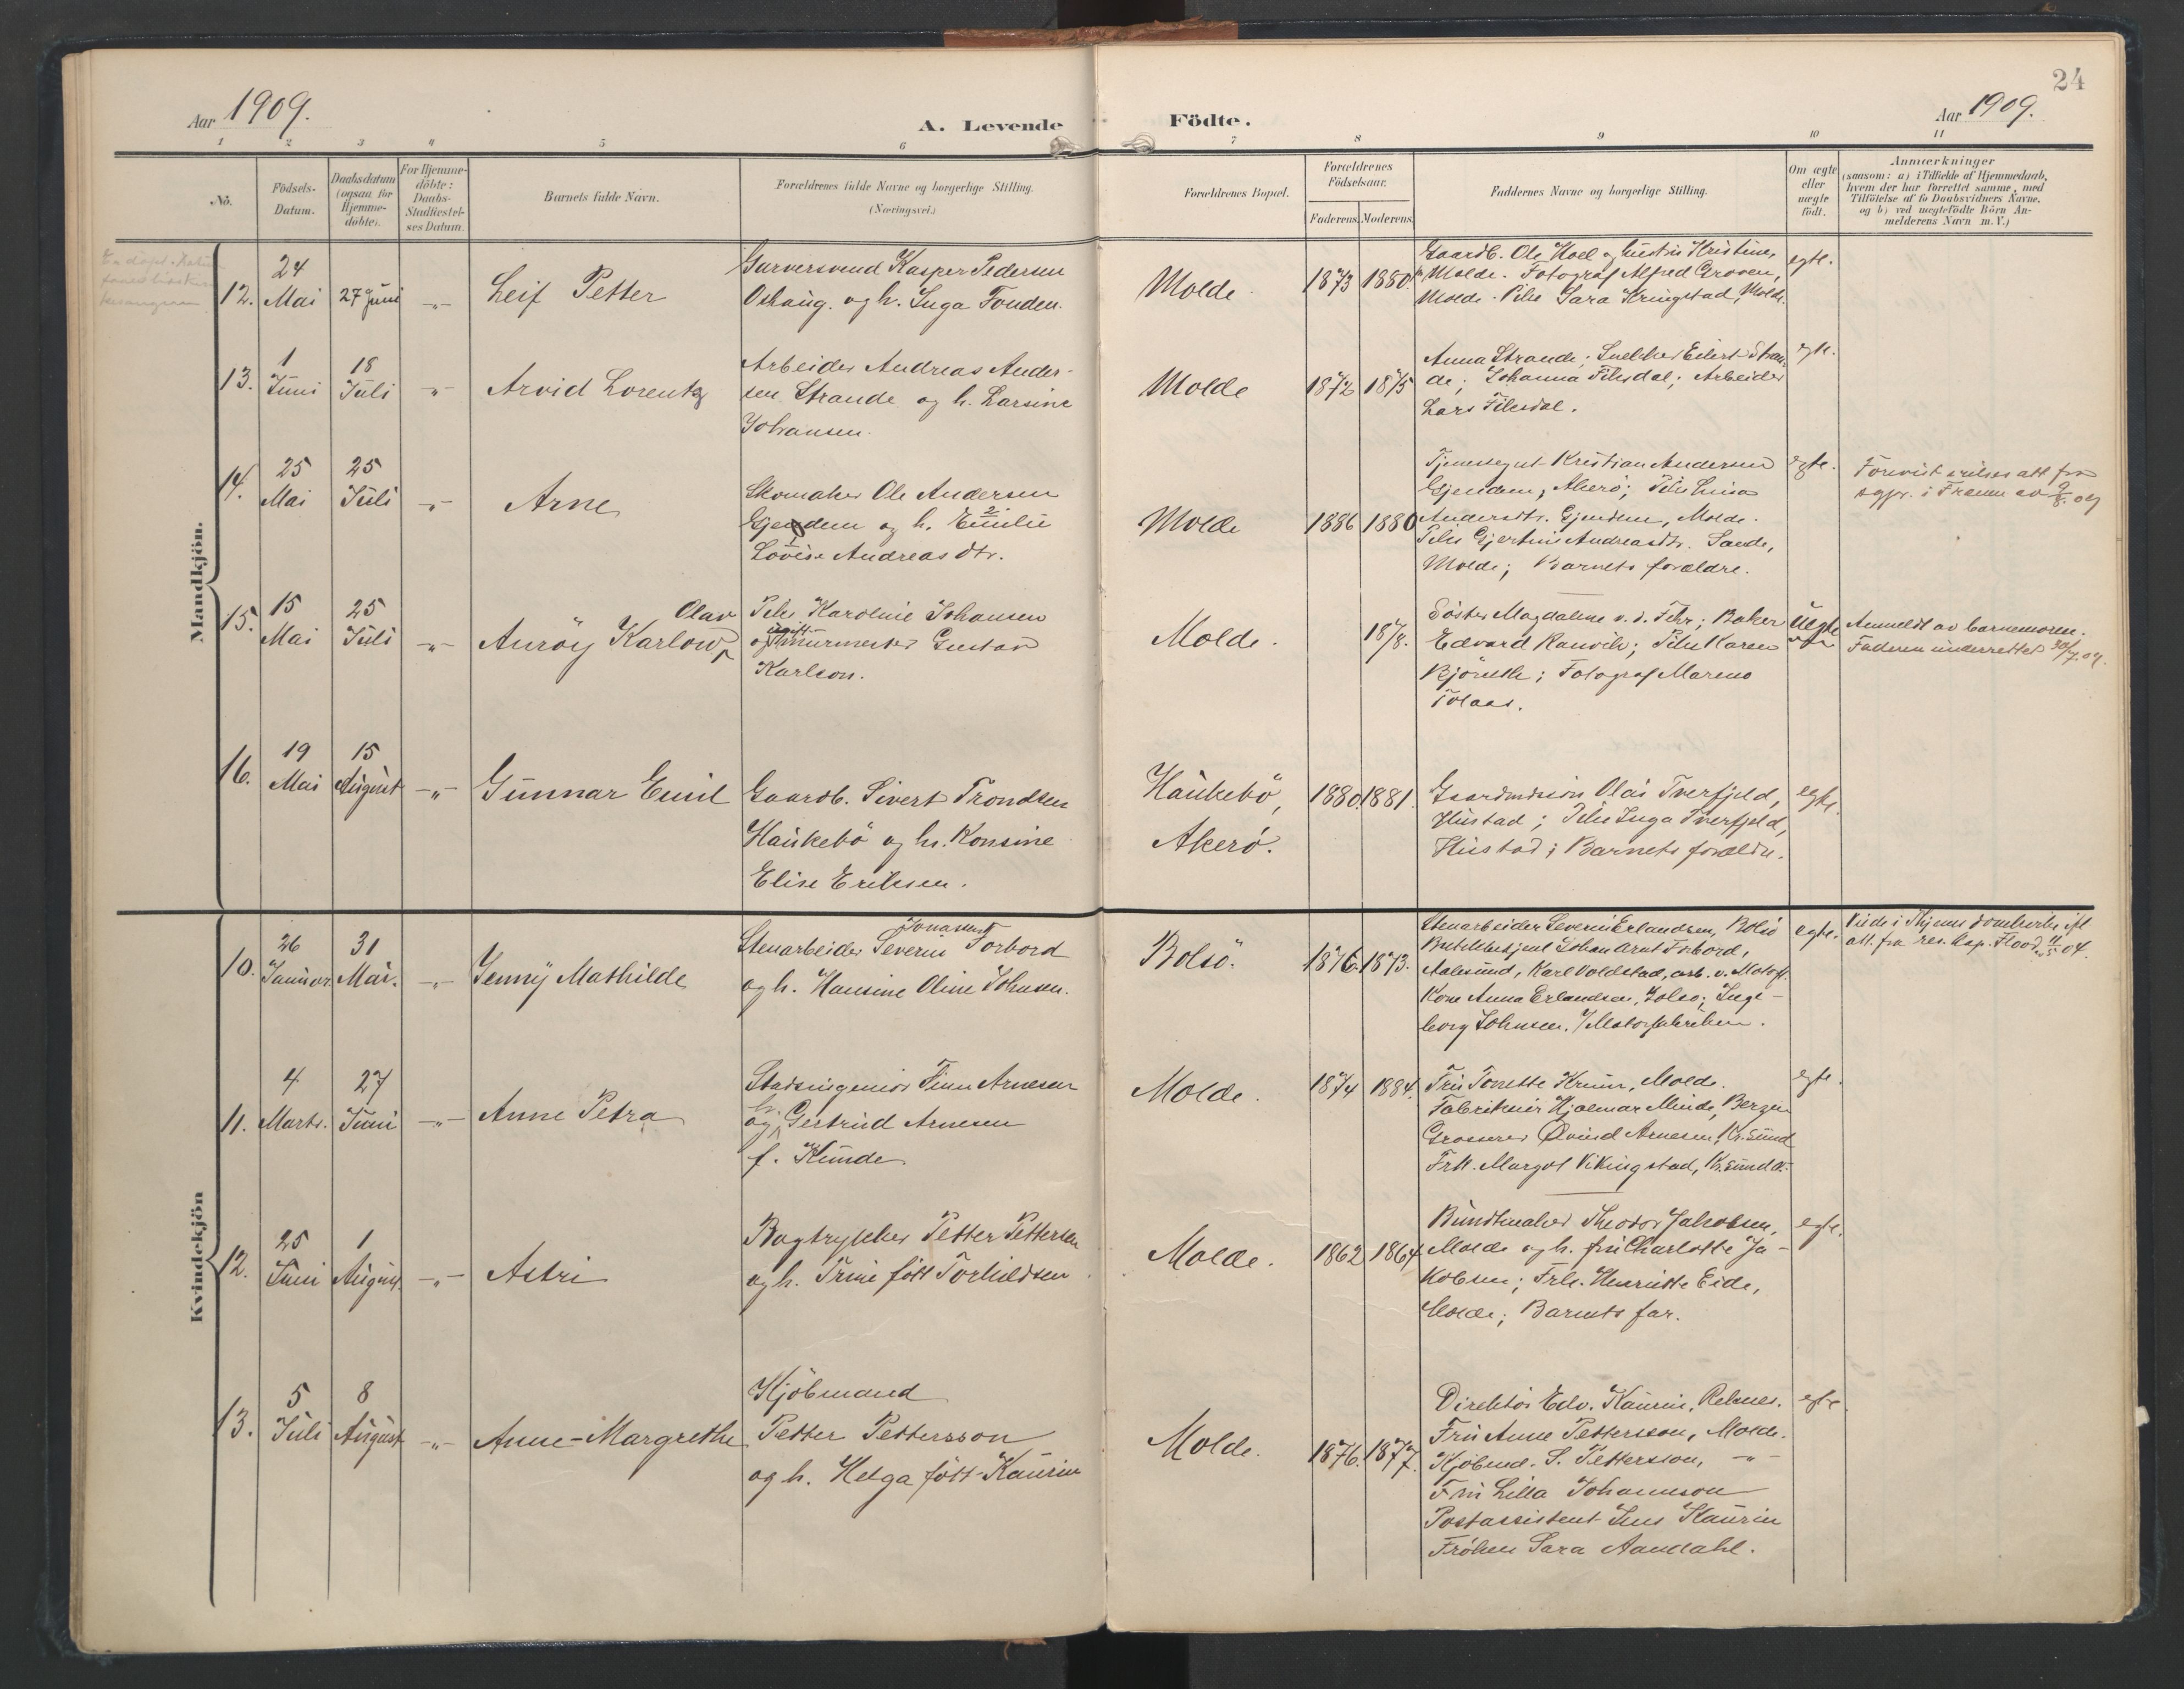 24
Aar 1909.
A. Levende Födte.
Aar 1909.
1 2 3 4 5 6 7 8 9 10 11
No.
Födsels-Datum.
Daabsdatum (ogsaa for Hjemme-döbte).
For Hjemme-döbte: Daabs-Stadfæstel-ses Datum.
Barnets fulde Navn.
Forældrenes fulde Navne og borgerlige Stilling.
(Næringsvei.)
Forældrenes Bopæl.
Forældrenes Födselsaar.
Faderens. Moderens.
Faddernes Navne og borgerlige Stilling.
Om ægte eller uægte født.
Anmærkninger
(saasom: a) i Tilfælde af Hjemmedaab,
hvem der har forrettet samme, med
Tilföielse af to Daabsvidners Navne,
og b) ved uægtefödte Börn An-
melderens Navn m. V.)
Mandkjön.
12. 24 Mai 27 Juni -"- Leif Petter
Garversvend Kasper Pedersen
Oshaug. og h. Inga Fonden.
Molde. 1873 1880.
Gaardb. Ole Hoel og hustru Kristine,
Molde. Fotograf Alfred Groven,
Molde. Pike Sara Kringstad, Molde.
egte.
13. 1 Juni 18 Juli -"- Arvid Lorentz
Arbeider Andreas Ander-
sen Strande og h. Larsine
Johansen.
Molde 1872 1875
Anna Strande; Snekker Eilert Stran-
de; Johanna Fiksdal; Arbeider
Lars Fiksdal.
egte.
14. 25 Mai 25 Juli -"- Arne
Skomaker Ole Andersen
Gjendem og h. Emilie
Lovise Andreasdtr.
Molde 1886 1880
Tjenesegut Kristian Andersen
Gjendem, Akerö; Pike Luisa
Andersdtr. Gjendem, Molde.
Pike Gjertine Andreasdtr. Sande,
Molde; Barnets forældre.
egte.
Forevist vielsesatt fra
sgpr. i Fræna av 9/8. 09
15. 15 Mai 25 Juli -"- Auröy Karlow Olav
Pike Karoline Johansen
og ugift murmester Gustav
Karlson.
Molde. 1878.
Söster Magdalene v. d. Fehr; Baker
Edvard Ranvik; Pike Karen
Björseth; Fotograf Mareno
Tolaas.
Uegte
Anmeldt av barnemoren.
Faderen underrettet 30/7. 09.
16. 19 Mai 15 August -"- Gunnar Emil
Gaardb. Sivert Trondsen
Haukebö og h. Konsine
Elise Eriksen.
Haukebö,
Akerö.
1880. 1881.
Gaardmdssön Olai Tverfjeld,
Hustad; Pike Inga Tverfjeld,
Hustad; Barnets forældre.
egte.
Kvindekjön
10. 26 Januar. 31 Mai. -"- Jenny Mathilde
Stenarbeider Severin Jonassen Forbord
og h. Hansine Oline Johnsen.
Bolsö. 1876. 1873.
Stenarbeider Severin Erlandsen, Bolsö
Johan Arnt Forbord,
Aalesund, Karl Voldstad, arb. v. Motorf.
Kone Anna Erlandsen, Bolsö; Inge-
borg Johnsen, v/Motorfabriken.
egte.
Viede i Thjems domkirke ifl.
att. fra res. kap. Flood 11/5 04.
11. 4 Marts. 27 Juni -"- Anne Petra
Stadsingeniör Finn Arnesen
og h. Gertrud Arnesen
f. Kunde
Molde. 1874 1884.
Fru Tonette Krum, Molde.
Fabrikeier Hjalmar Minde, Bergen
Grosserer Övind Arnesen, Kr.sund
Frk. Margot Vikingstad, Kr.sund N.
egte.
12. 25 Juni 1 August. -"- Astri
Bogtrykker Petter Pettersen
og h. Trine født Torkildsen
Molde. 1862 1864
Bundtmaker Theodor Jakobsen,
Molde og h. fru Charlotte Ja-
kobsen; Frk. Henriette Eide,
Molde; Barnets far.
egte.
13. 5 Juli 8 August -"- Anne-Margrethe
Kjöbmand
Petter Pettersson
og h. Helga født Kaurin
Molde. 1876. 1877.
Direktör Edv. Kaurin, Reknes.
Fru Anne Pettersson, Molde.
Kjöbmd. S. Pettersson, -"-
Fru Lilla Johannson
Postassistent Jens Kaurin
Fröken Sara Aandahl.
egte